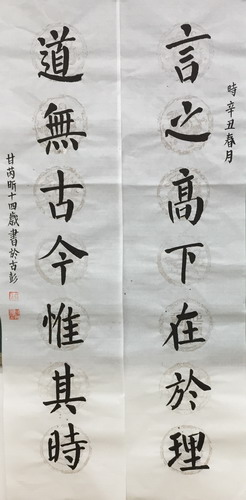 時辛丑春月
言之高下在於理
道無古今惟其時
甘芮昕十四歲書於古彭